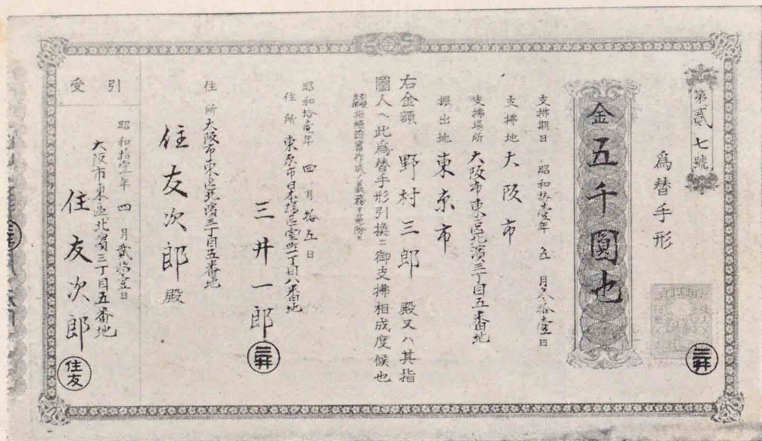 第貳七號
爲替手形
金五千圓也
支拂期日 昭和拾壹年五月
支拂地 大阪市
支拂場所 大阪市東區北濱三丁目五番地
振出地 東京市
右金額 野村三郎 殿又ハ其指
圖人ヘ此爲替手形引換ニ御支拂相成度候也
昭和拾壹年四月拾五日
住所 東京市日本橋區室町二丁目八番地
三井一郎
三井
住所 大阪市東區北濱三丁目五番地
住友次郎 殿
引受
昭和拾壹年四月
大阪市東區北濱三丁目五番地
住友次郎
住友